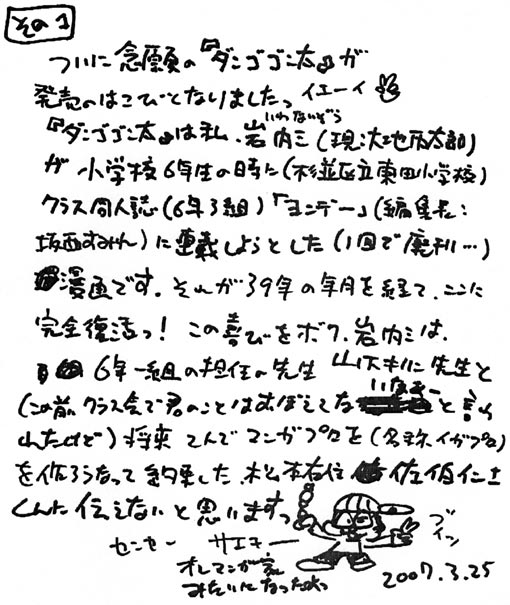 その1
ついに念願の『ダンゴゴン太』が
発売のはこびとなりましたっ イエーイ
いわないぞう
『ダンゴゴン太』は私、岩内三(現:大地丙太郎)
が 小学校6年生の時に(杉並区立東田小学校)
クラス同人誌(6年3組)「ヨンデー」(編集長:
坂西すみれ)に連載しようとした(1回で廃刊…)
漫画です。それが39年の年月を経て、ここに
完全復活っ! この喜びをボク、岩内三は、
6年一組の担任の先生 山下 先生と
(この前クラス会で君のことはおぼえてな
いなぁーと言わ
れたけど)将来 てんで マンガプロを(名称、イガプロ)
を作ろうなって約束した、松本 佐伯
くんに伝えたいと思いますっ
センセー サエキー
ブイン
オレマンガ家
みたいになったよっ
2007.3.25